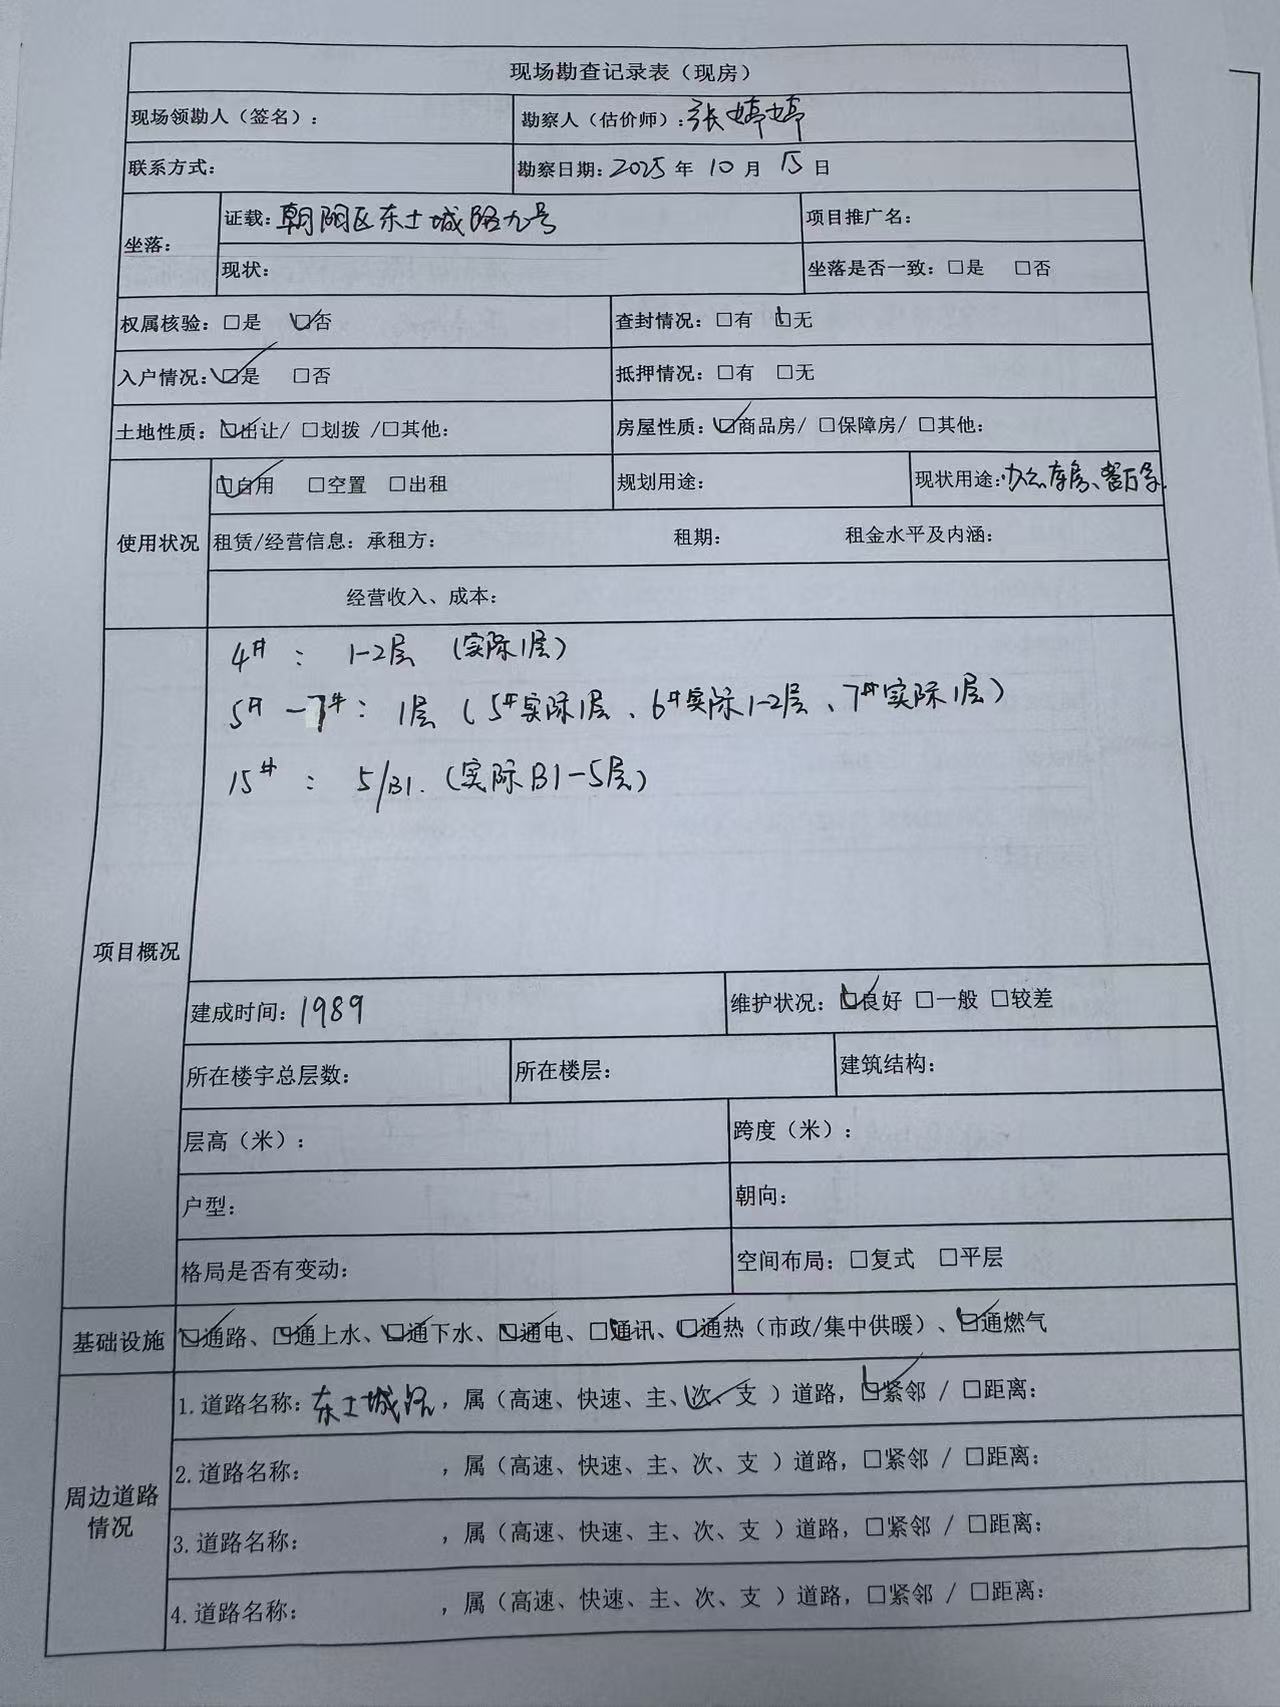 现场勘查记录表（现房）
现场领勘人（签名）： 勘察人（估价师）：张婷婷
联系方式： 勘察日期：2025 年 10 月 15 日
坐落： 证载：朝阳区东土城路九号 项目推广名：
现状： 坐落是否一致：□是 □否
权属核验：□是 ☑否 查封情况：□有 ☑无
入户情况：☑是 □否 抵押情况：□有 □无
土地性质：☑出让/ □划拨 /□其他： 房屋性质：☑商品房/ □保障房/ □其他：
使用状况 ☑自用 □空置 □出租 规划用途： 现状用途：办公、库房、
租赁/经营信息：承租方： 租期： 租金水平及内涵：
经营收入、成本：
项目概况
4#： 1-2层 （实际1层）
5#-7#： 1层（5#实际1层、6#实际1-2层、7#实际1层）
15#： 5/B1.（实际B1-5层）
建成时间：1989 维护状况：☑良好 □一般 □较差
所在楼宇总层数： 所在楼层： 建筑结构：
层高（米）： 跨度（米）：
户型： 朝向：
格局是否有变动： 空间布局：□复式 □平层
基础设施 ☑通路、☑通上水、☑通下水、☑通电、☑通讯、☑通热（市政/集中供暖）、☑通燃气
周边道路情况
1.道路名称：东土城路，属（高速、快速、主、次、支 ）道路，☑紧邻 / □距离：
2.道路名称： ，属（高速、快速、主、次、支 ）道路，□紧邻 / □距离：
3.道路名称： ，属（高速、快速、主、次、支 ）道路，□紧邻 / □距离：
4.道路名称： ，属（高速、快速、主、次、支 ）道路，□紧邻 / □距离：